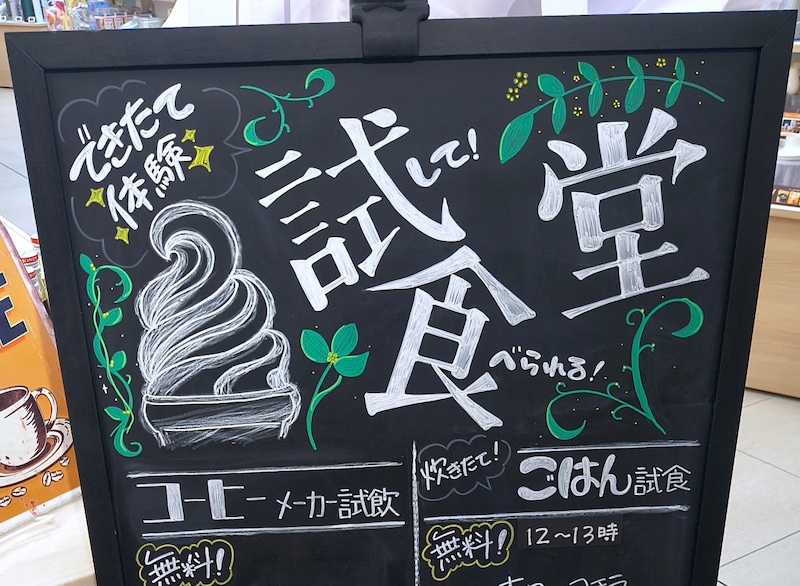 できたて
体験
試して！
食べられる！
堂
コーヒーメーカー試飲
無料！
炊きたて！
ごはん試食
無料！
12〜13時
E